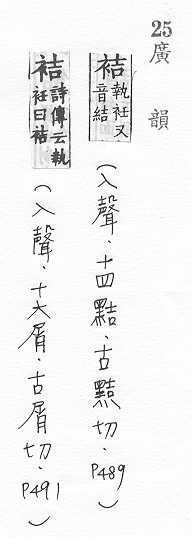 25
廣韻
袺執衽又音結(入聲.十四黠.古黠切.P489)
袺詩傳云執衽曰袺(入聲.十六屑.古屑切.P491)